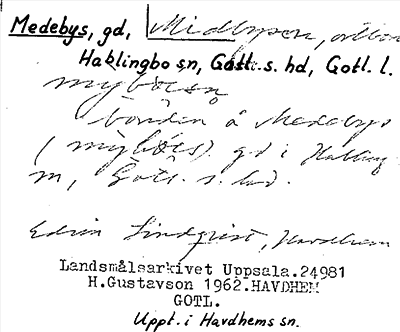 Medebys, gd,
Haklingbo sn, Gotl. s. hd, Gotl. l.
bonden å Medebys
gd i
sn, Gotl. s. hd.
Edvin Lindqvist, Havdhem
Landsmålsarkivet Uppsala.24981
H.Gustavson 1962.HAVDHEM
GOTL.
Uppt. i Havdhems sn.